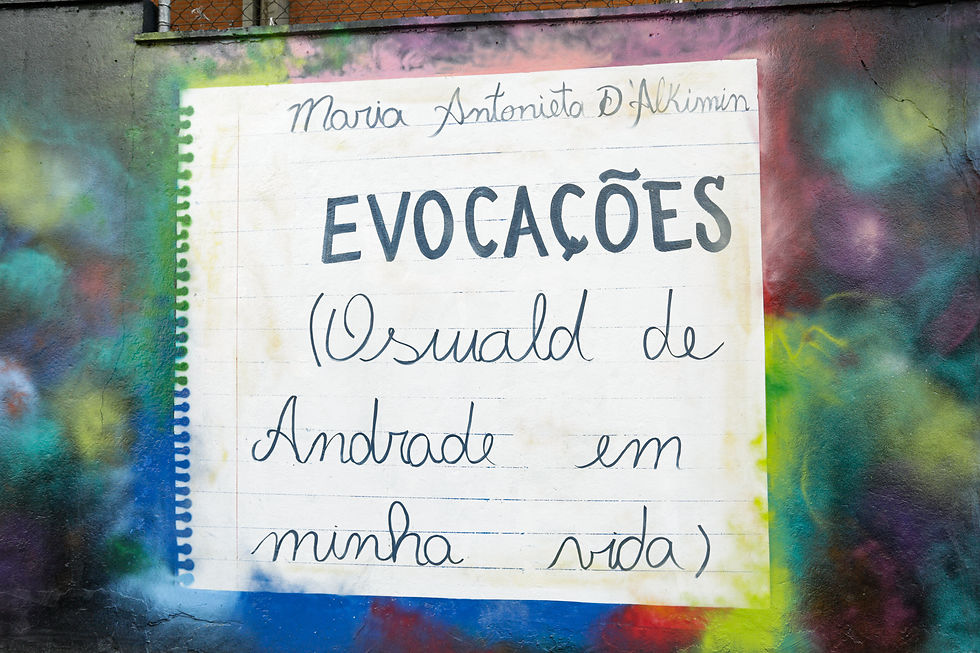 Maria Antonieta D'Alkimin
EVOCAÇÕES
(Oswald de
Andrade em
minha vida)